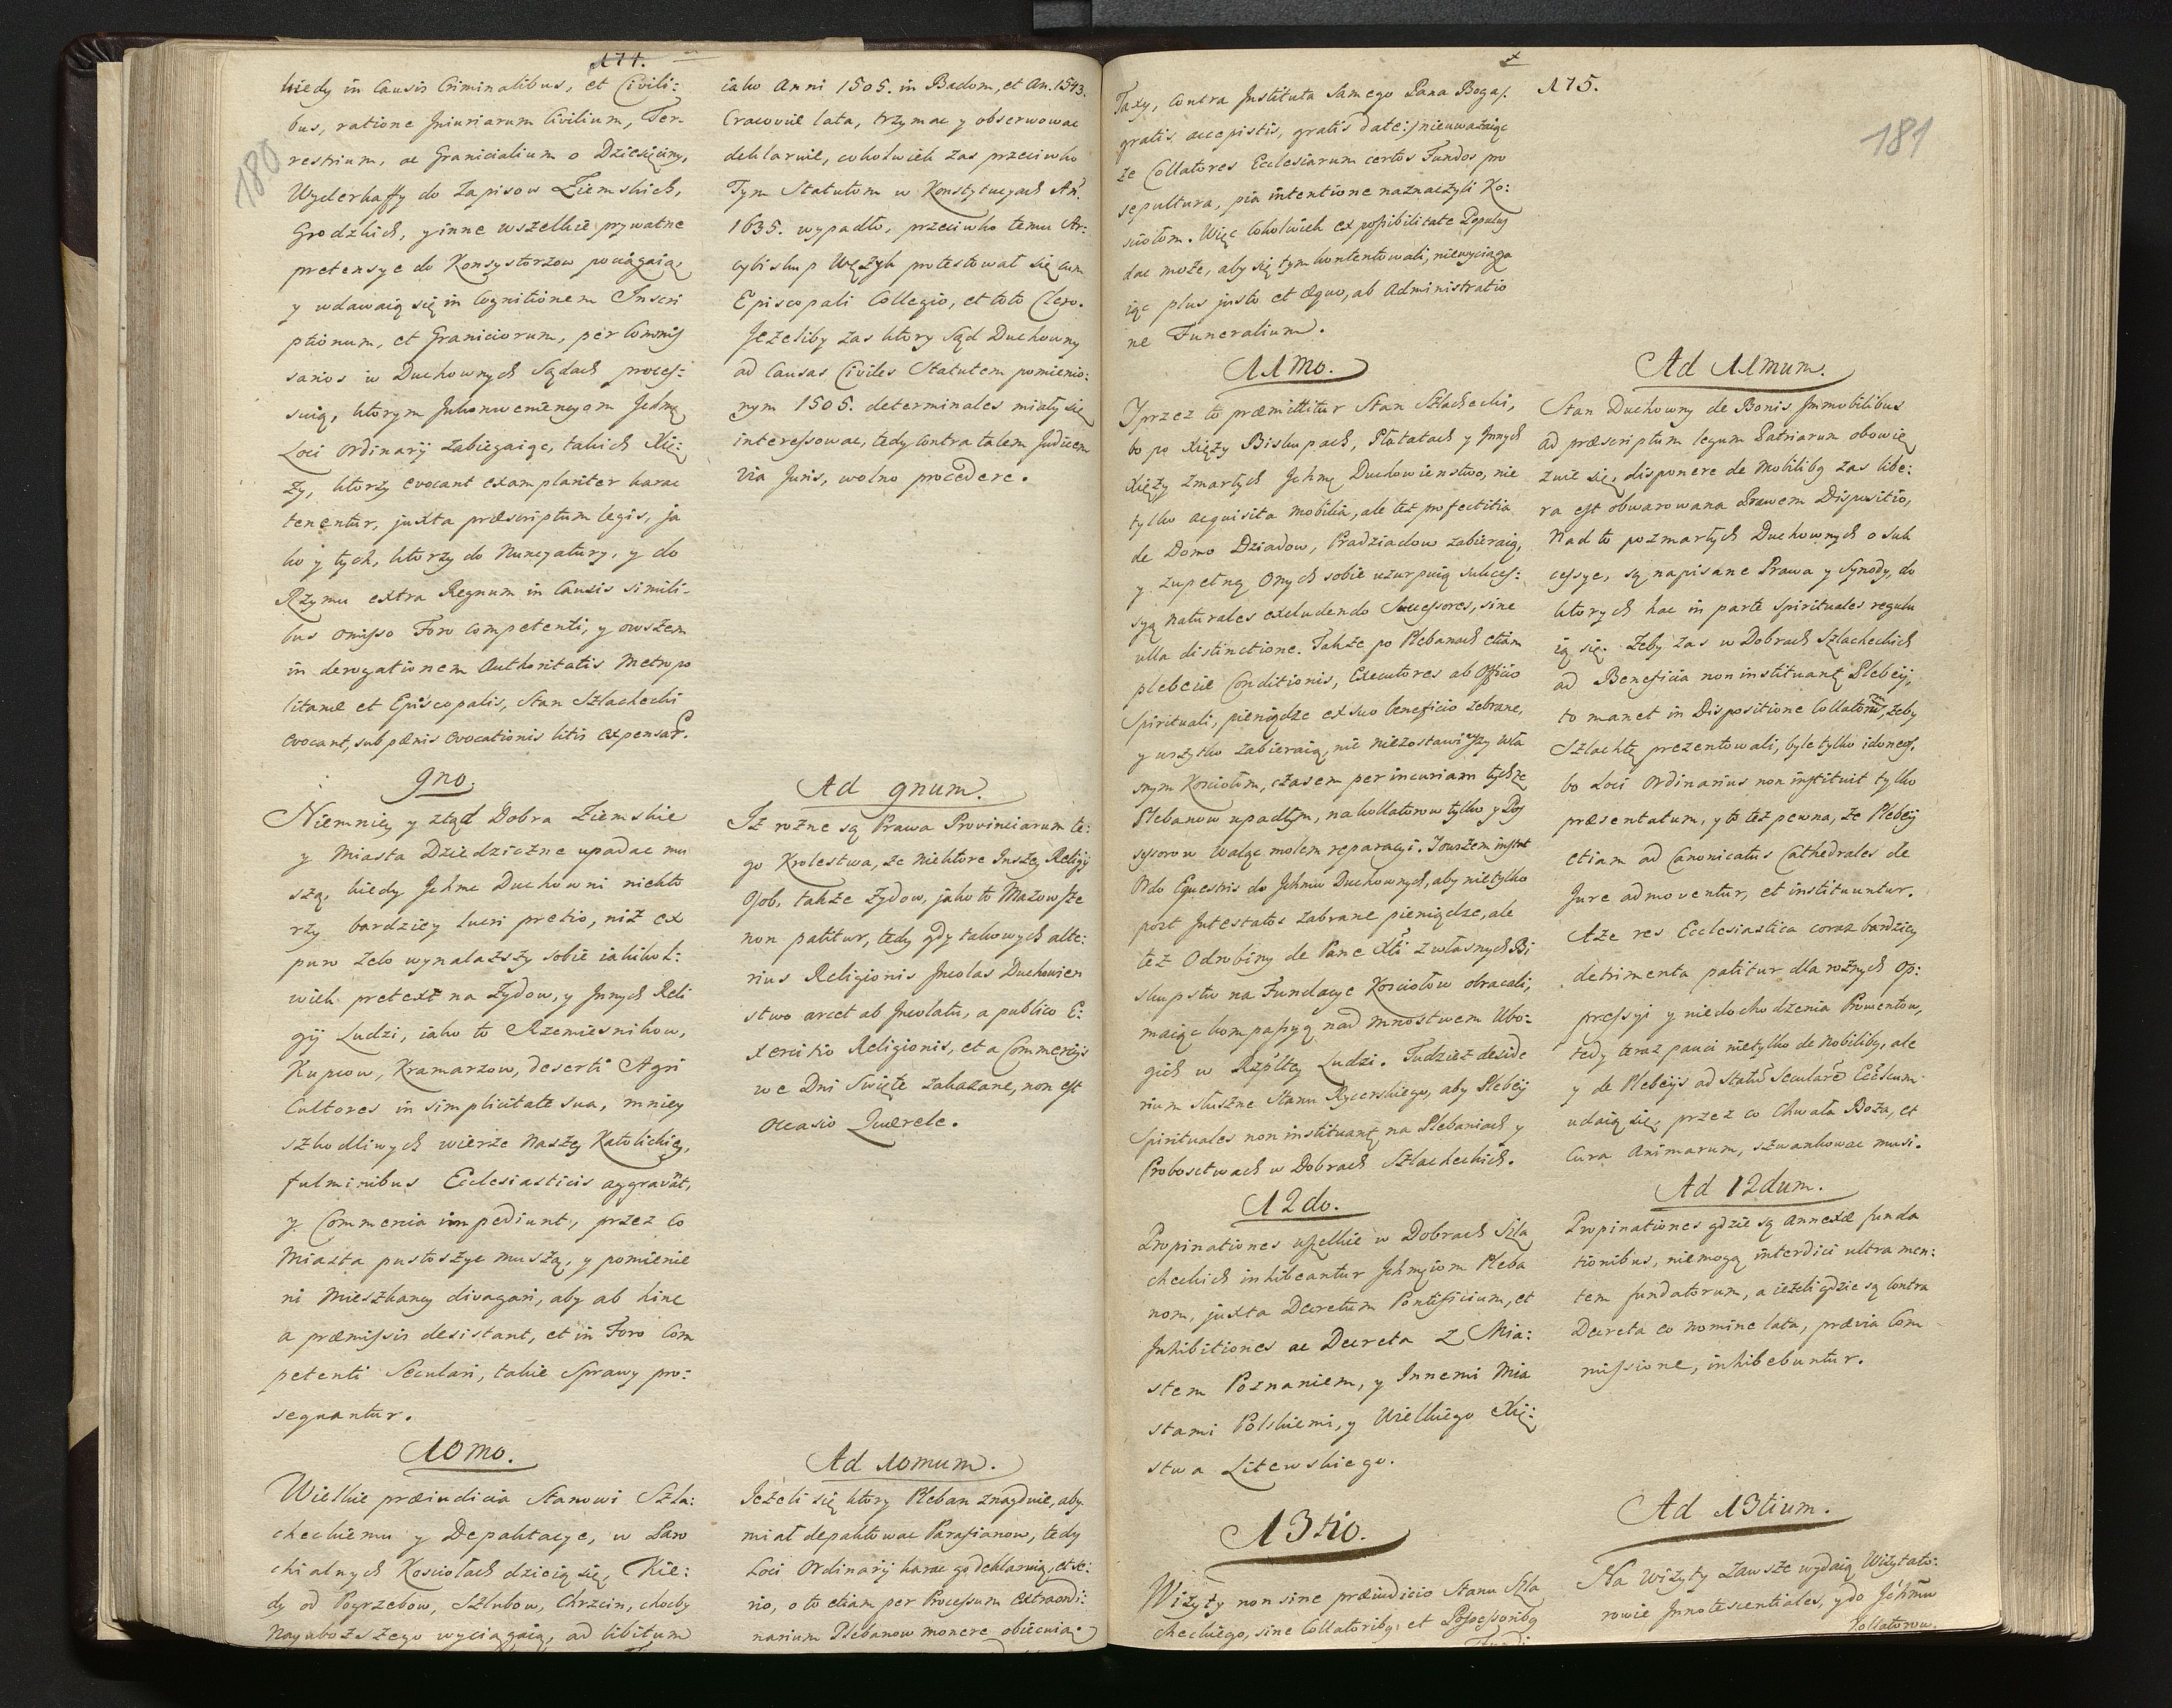 174.
180
kiedy in Causis Criminalibus, et Civili:
bus, ratione Iniuriarum Civilium, Ter-
restrium, ac Granicialium o Dziesięciny,
Wyderkaffy do Zapisow Ziemskich,
Grodzkich, y inne wszelkie prywatne
pretensye do Konsystorzow pociągaią,
y wdawaią się in Cognitionem Inscri
ptionum, et Graniciorum, per Commis
sarios w Duchownych Sądach proces:
suią, ktorym Inkonweniencyom Ichmę
Loci Ordinarij zabiegaiąc, takich Xię:
ży, ktorzy evocant exemplariter karac
tenentur, juxta præscriptum legis, ja
ko y tych, ktorzy do Nuncyatury, y do
Rzymu extra Regnum in Causis simili-
bus omisso Foro competenti, y owszem
in derogationem Authoritatis Metropo
litanæ et Episcopalis, Stan Szlachecki
evocant, sub pænis evocationis litis expensar.
9no.
Niemniey y ztąd Dobra Ziemskie
y Miasta Dziedziczne upadac mu
szą, kiedy Ichmc Duchowni niekto
rzy bardziey lucri pretio, niż ex
puro zelo wynalazszy sobie iakikol:
wiek pretext na Zydow, y Innych Reli
gij Ludzi, iako to Rzemiesnikow,
Kupcow, Kramarzow, deserti Agri
Cultores in simplicitate sua, mniey
szkodliwych wierze naszey Katolickiey,
fulminibus Ecclesiasticis aggravāt,
y Commercia impediunt, przez co
Miasta pustoszyc muszą, y pomienie
ni Mieszkancy divagari, aby ab hinc
a præmissis desistant, et in Foro Com
petenti Seculari, takie Sprawy pro:
sequantur.
10mo.
Wielkie præiudicia Stanowi Szla:
checkiemu y Depaktacye, w Paro
chialnych Kosciołach dzieią się, Kie:
dy od Pogrzebow, Szlubow, Chrzcin, choćby
nayuboższego wyciągaią, ad libitum
iako Anni 1505. in Radom, et An. 1543.
Cracoviæ lata, trzymac y obserwowac
deklaruie, cokolwiek zas przeciwko
Tym Statutom w Konstytucyach An.
1635. wypadło, przeciwko temu Ar:
cybiskup Wężyk protestował się cum
Episcopali Collegio, et toto Clero.
Jezeliby zas ktory Sąd Duchowny
ad Causas Civiles Statutem pomienio:
nym 1505. determinales miały się
interessowac, tedy contra talem Judicem
via Juris, wolno procedere.
Ad 9num.
Iż rożne są Prawa Provinciarum te:
go Krolestwa, że niektore Inszey Religij
Osob, także Zydow, jako to Mazowsze
non patitur, tedy gdy takowych alte:
rius Religionis Incolas Duchowien
stwo arcet ab Incolatu, a publico E:
xercitio Religionis, et a Commercijs
we Dni Swięte zakazane, non est
occasio Querelæ.
Ad 10mum.
Jeżeli się ktory Pleban znaydzie, aby
miał depaktowac Parafianow, tedy
Loci Ordinarij karac go deklaruią, et se:
rio, o to etiam per Processum extraordi:
narium Plebanow monere obiecuią.
175.
181
Taxy, contra Instituta Samego Pana Boga /:
gratis accepistis, gratis date:/ nieuważaiąc
że Collatores Ecclesiarum certos Fundos pro
sepultura, pia intentione naznaczyli Ko:
sciołom. Więc cokolwiek ex possibilitate Populus
dac może, aby się tym kontentowali, niewyciąga
iąc plus justo et æquo, ab Administratio
ne Funeralium.
11mo.
I przez to præmittitur Stan Szlachecki,
bo po Xięży Biskupach, Prałatach y Innych
Xięży zmarłych Ichmę Duchowienstwo, nie
tylko acquisita mobilia, ale też profectitia
de Domo Dziadow, Pradziadow zabieraią,
y zupełną onych sobie uzurpuią sukces:
syą naturales excludendo Successores, sine
ulla distinctione. Także po Plebanach etiam
plebeiæ Conditionis, Executores ab Officio
Spirituali, pieniądze ex suo beneficio zebrane,
y wszytko zabieraią, nic niezostawiwszy wła
snym Kosciołom, czasem per incuriam tychże
Plebanow upadłym, na kollatorow tylko y Pos
sessorow waląc molem reparacyi. Iowszem instat
Ordo Equestris do Ichmw Duchownych, aby nietylko
post Intestatos zabrane pieniądze, ale
też Odrobiny de Pane Xti z własnych Bi
skupstw na Fundacye Kosciołow obracali,
maiąc kompassyą nad mnostwem Ubo:
gich w Rzpltey Ludzi. Tudzież deside
rium słuszne Stanu Rycerskiego, aby Plebeij
Spirituales non instituant na Plebaniach y
Probostwach w Dobrach Szlacheckich.
12do.
Propinationes wszelkie w Dobrach Szla
checkich inhibeantur Ichmciom Pleba
nom, juxta Decretum Pontificium, et
Inhibitiones ac Decreta z Mia:
stem Poznaniem, y Innemi Mia
stami Polskiemi, y Wielkiego Xię:
stwa Litewskiego.
13tio.
Wizyty non sine præiudicio Stanu Szla
checkiego, sine Collatoribq et Possessoribq
Ad 11mum.
Stan Duchowny de Bonis Immobilibus
ad præscriptum legum Patriarum obowię
zuie się, disponere de Mobilibq zas libe:
ra est obwarowana Prawem Dispositio,
Nad to po zmarłych Duchownych o suk
cessye, są napisane Prawa y Synody, do
ktorych hac in parte Spirituales regulu
ią się. Zeby zas w Dobrach Szlacheckich
ad Beneficia non instituant Plebeij,
to manet in Dispositione Collatorū, żeby
Szlachtę prezentowali, byle tylko idoneos,
bo Loci Ordinarius non instituit tylko
præsentatum, y to też pewna, że Plebeij
etiam ad Canonicatus Cathedrales de
Jure admoventur, et instituuntur.
Aże res Ecclesiastica coraz bardziey
detrimenta patitur dla rożnych Op:
pressyi y niedochodzenia Prowentow,
tedy teraz pauci nietylko de Nobilibq, ale
y de Plebeijs ad statū Seculare Ecclesum
udaią się, przez co Chwała Boża, et
Cura Animarum, szwankowac musi.
Ad 12dum.
Propinationes gdzie są annexæ funda
tionibus, niemogą interdici ultra men:
tem fundatorum, a ieżeli gdzie są contra
Decreta eo nomine lata, prævia Com
missione, inhibebuntur.
Ad 13tium.
Na Wizyty zawsze wydaią Wizytato:
rowie Innotescentiales, y do Ichmw
Kollatorow.